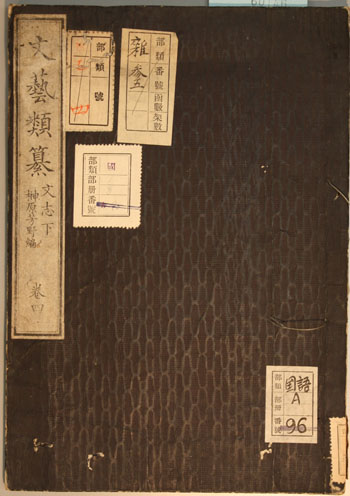 文藝類纂
文志下
榊原芳野編
卷四
部類
號
部類番號函數架數
雜
國
部類部册番號
部類部册番號
国語
A
96